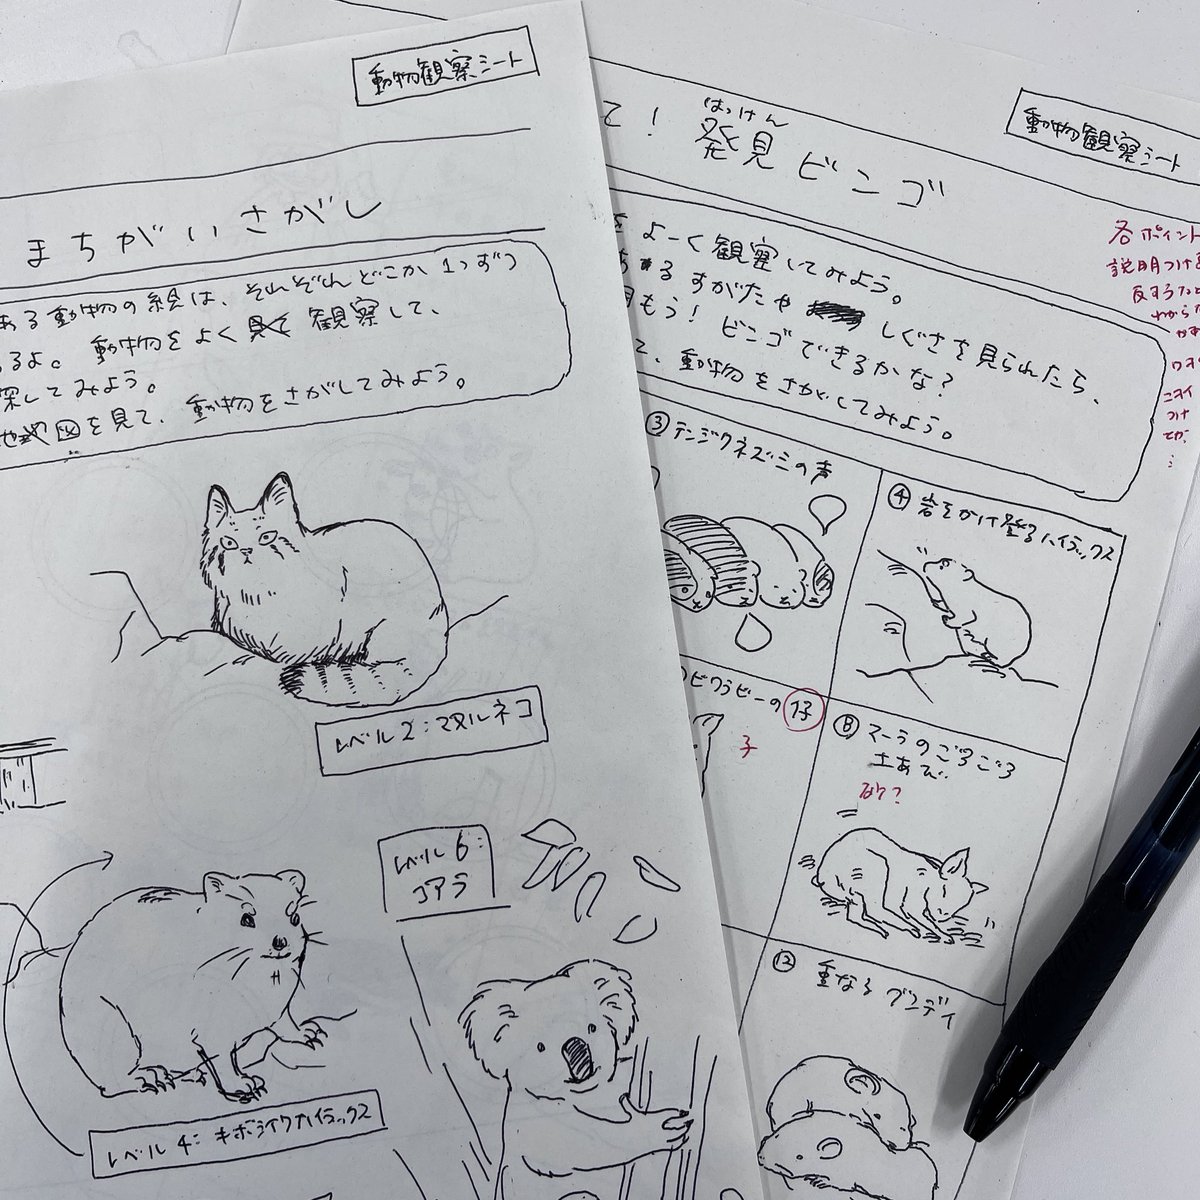 動物観察シート
まちがいさがし
ある動物の絵は、それぞれどこか1つずつ
るよ。動物をよく観察して、
探してみよう。
地図を見て、動物をさがしてみよう。
レベル2:マヌルネコ
レベル6:
コアラ
レベル4:キボシイワハイラックス
動物観察シート
はっけん
て!発見ビンゴ
よーく観察してみよう。
あるすがたや しぐさを見られたら、
もう!ビンゴできるかな?
て、動物をさがしてみよう。
各ポイント
説明つける
わからな
③テンジクネズミの声
④岩をかけ登るハイラックス
ビワラビーの仔
子
⑧マーラのごろごろ
土あび
砂?
⑫重なるグンディ